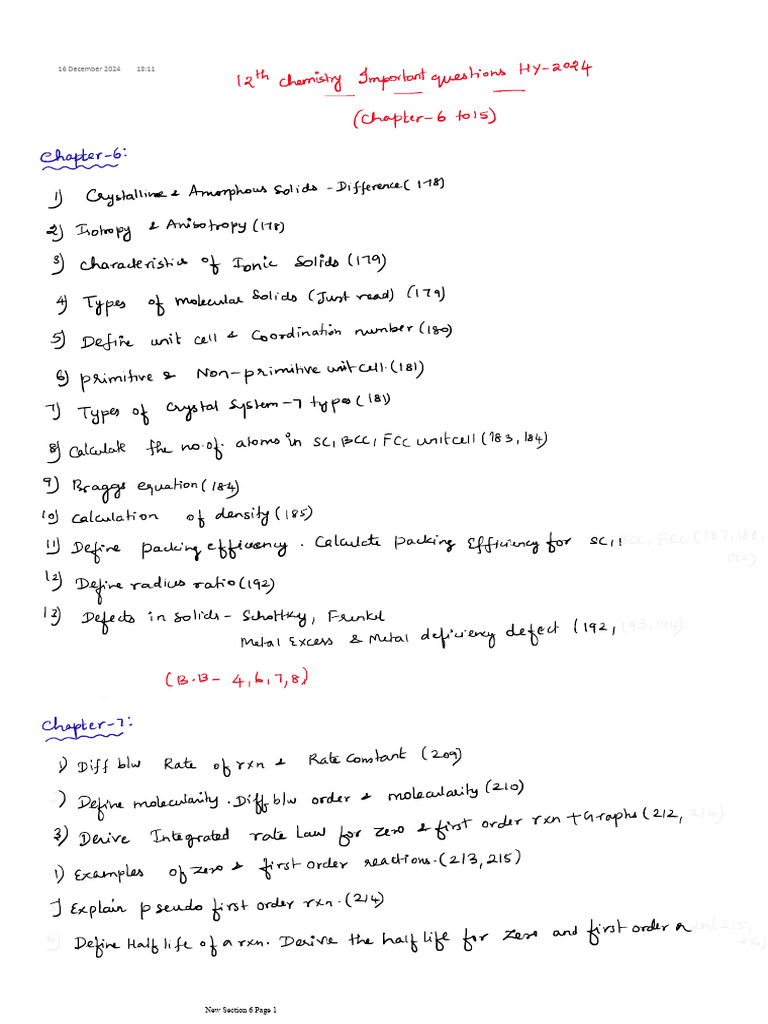 16 December 2024 18:11
12th chemistry Important questions HY-2024
(Chapter-6 to 15)
Chapter-6:
1) Crystalline & Amorphous Solids - Difference (178)
2) Isotropy & Anisotropy (178)
3) Characteristics of Ionic Solids (179)
4) Types of molecular solids (Just read) (179)
5) Define unit cell & Coordination number (180)
6) primitive & Non-primitive unit cell. (181)
7) Types of Crystal System-7 types (181)
8) Calculate the no.of. atoms in SC, BCC, FCC unitcell (183, 184)
9) Braggs equation (184)
10) Calculation of density (185)
11) Define packing efficiency. Calculate packing Efficiency for SC, BCC, FCC (187, 188,
192)
12) Define radius ratio (192)
13) Defects in solids - Schottky, Frenkel
Metal Excess & Metal deficiency defect (192, 193, 194)
(B.B - 4, 6, 7, 8)
Chapter-7:
1) Diff b/w Rate of rxn & Rate Constant (209)
2) Define molecularity. Diff b/w order & molecularity (210)
3) Derive Integrated rate Law for zero & first order rxn + Graphs (212, 214)
) Examples of zero & first order reactions. (213, 215)
) Explain pseudo first order rxn. (214)
6) Define Half life of a rxn. Derive the half life for zero and first order rxn (215,
216)
New Section 6 Page 1